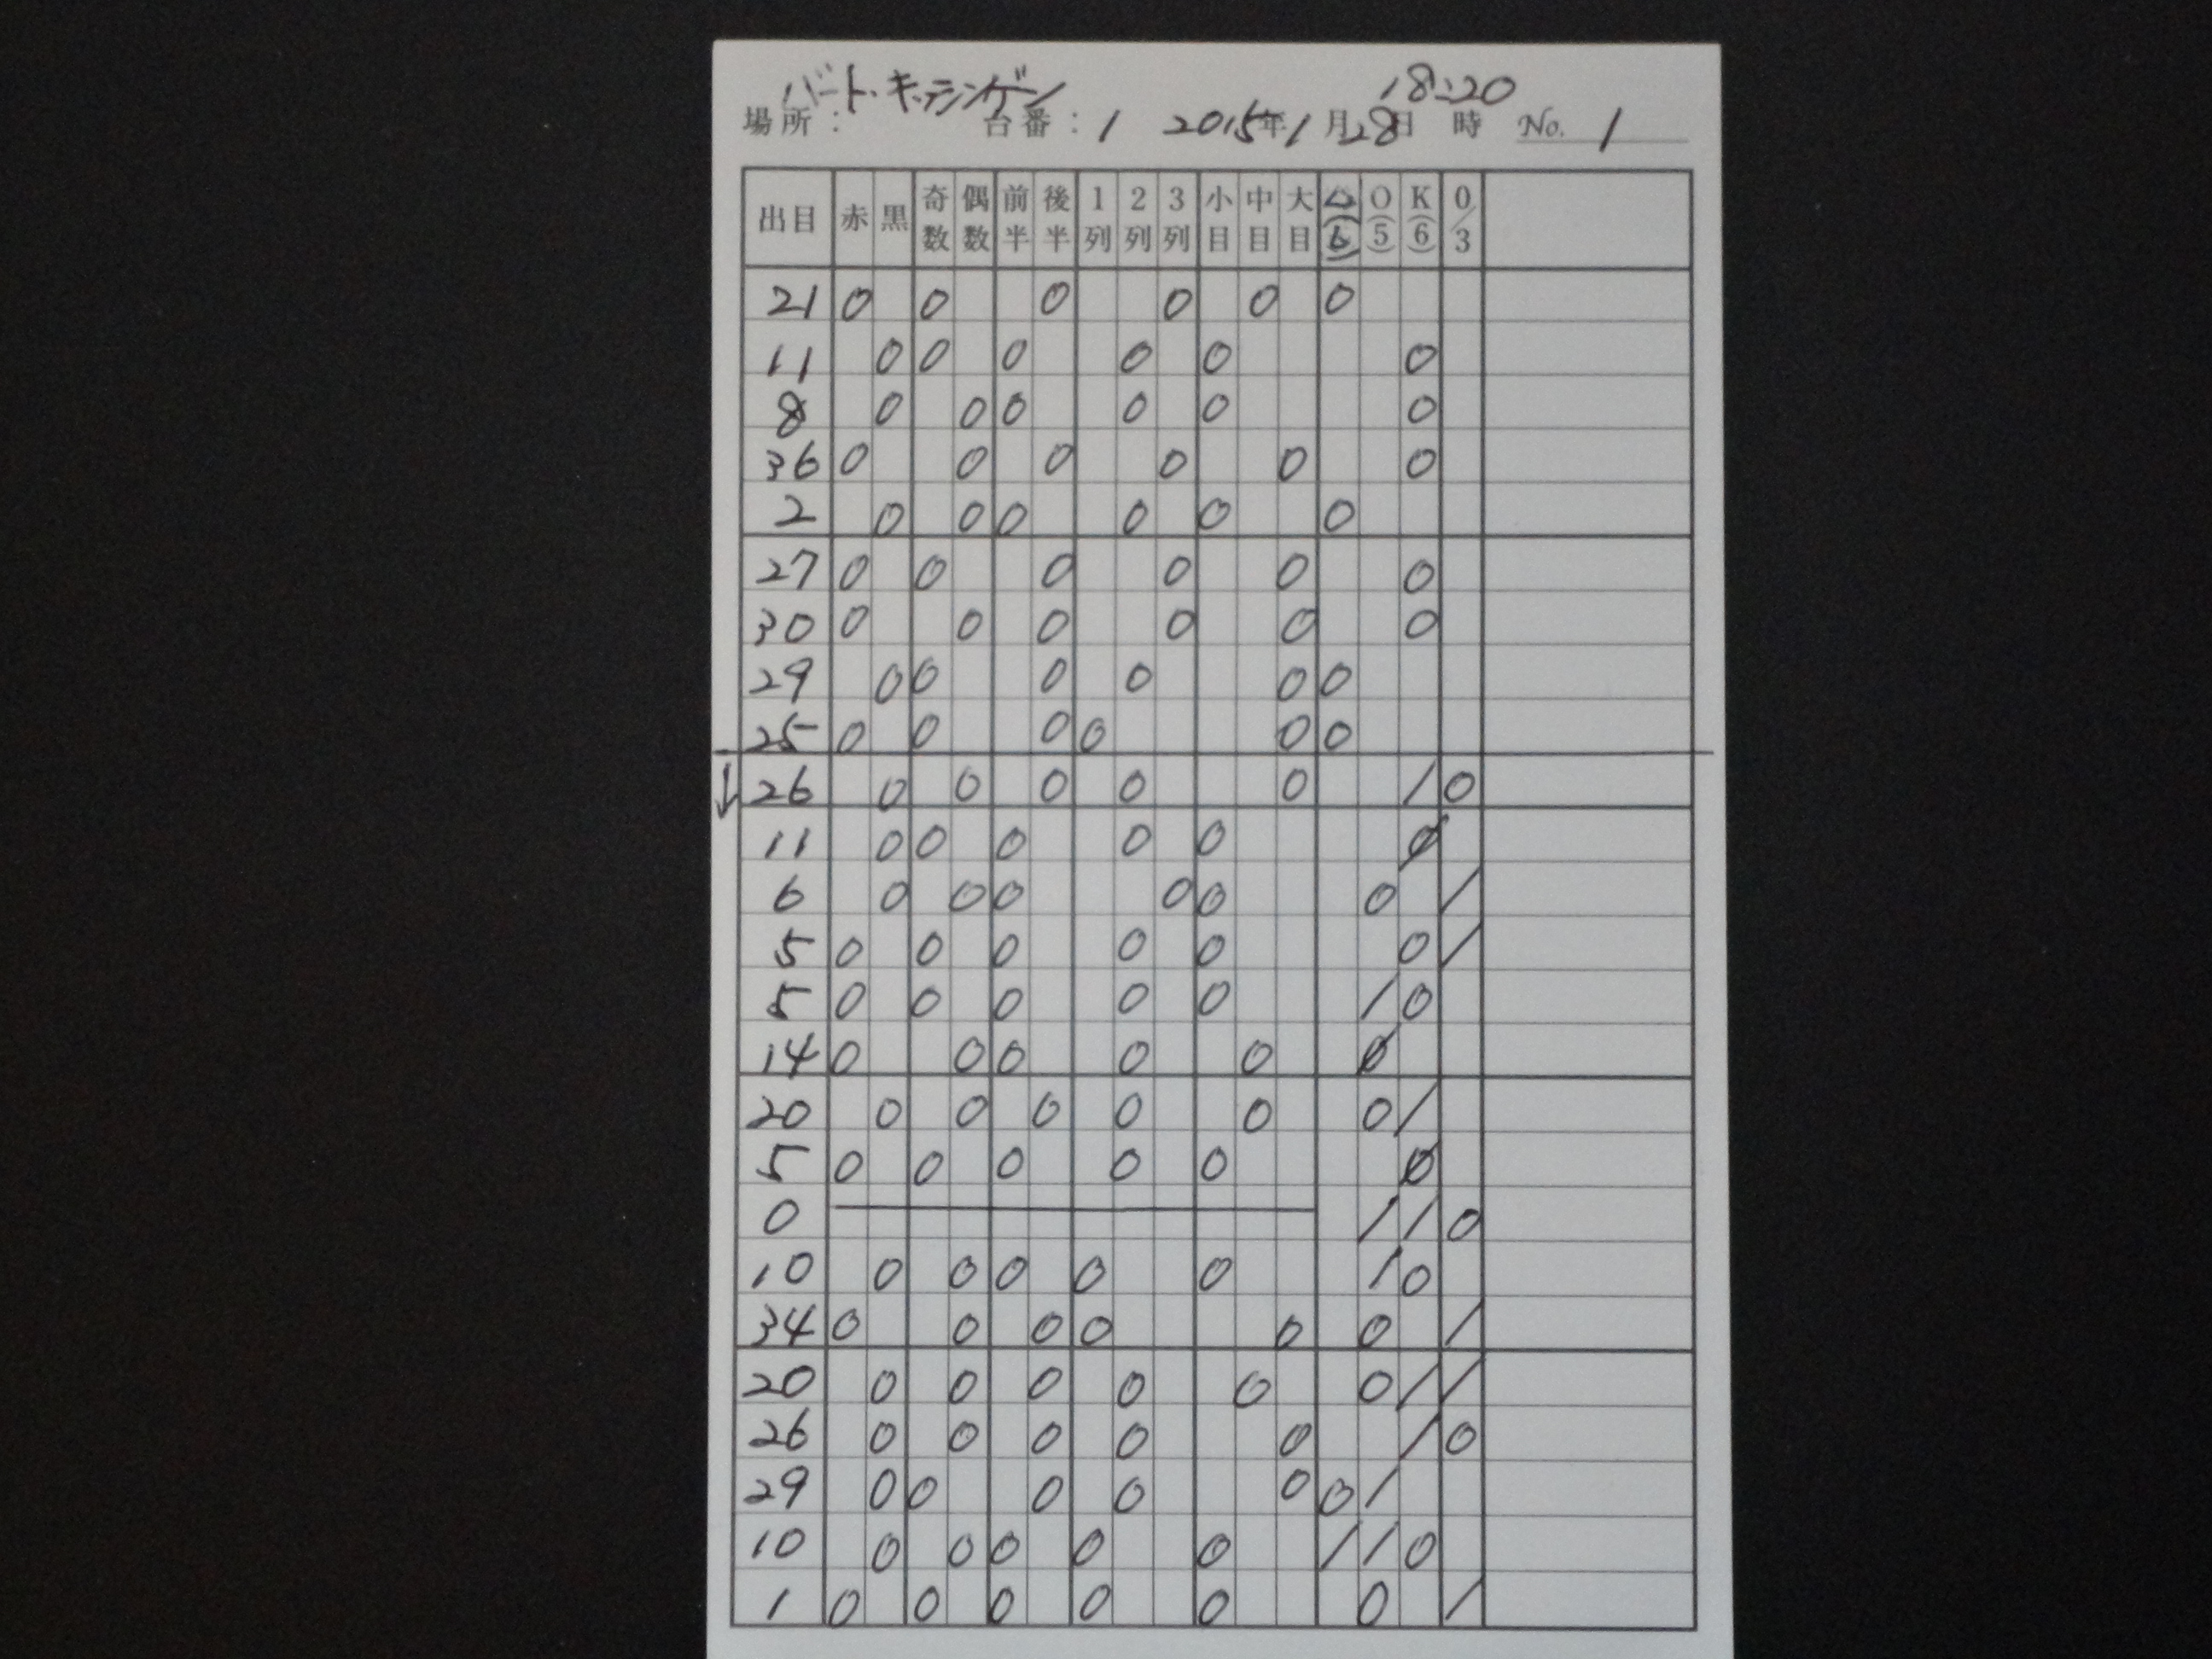 バート・キッシンゲン 18:20
場所: 台番:1 2015年1月28日 時 No. 1
出目 赤 黒 奇数 偶数 前半 後半 1列 2列 3列 小目 中目 大目 △ O(5) K(6) 0/3
21 0 0 0 0 0 0
11 0 0 0 0 0 0
8 0 0 0 0 0 0
36 0 0 0 0 0 0
2 0 0 0 0 0 0
27 0 0 0 0 0 0
30 0 0 0 0 0 0
29 0 0 0 0 0 0
25 0 0 0 0 0 0
↓ 26 0 0 0 0 0 / 0
11 0 0 0 0 0 0
6 0 0 0 0 0 0 /
5 0 0 0 0 0 0 /
5 0 0 0 0 0 / 0
14 0 0 0 0 0 0
20 0 0 0 0 0 0 /
5 0 0 0 0 0 0
0 / / 0
10 0 0 0 0 0 / 0
34 0 0 0 0 0 0 /
20 0 0 0 0 0 0 / /
26 0 0 0 0 0 / 0
29 0 0 0 0 0 0 /
10 0 0 0 0 0 / / 0
1 0 0 0 0 0 0 /